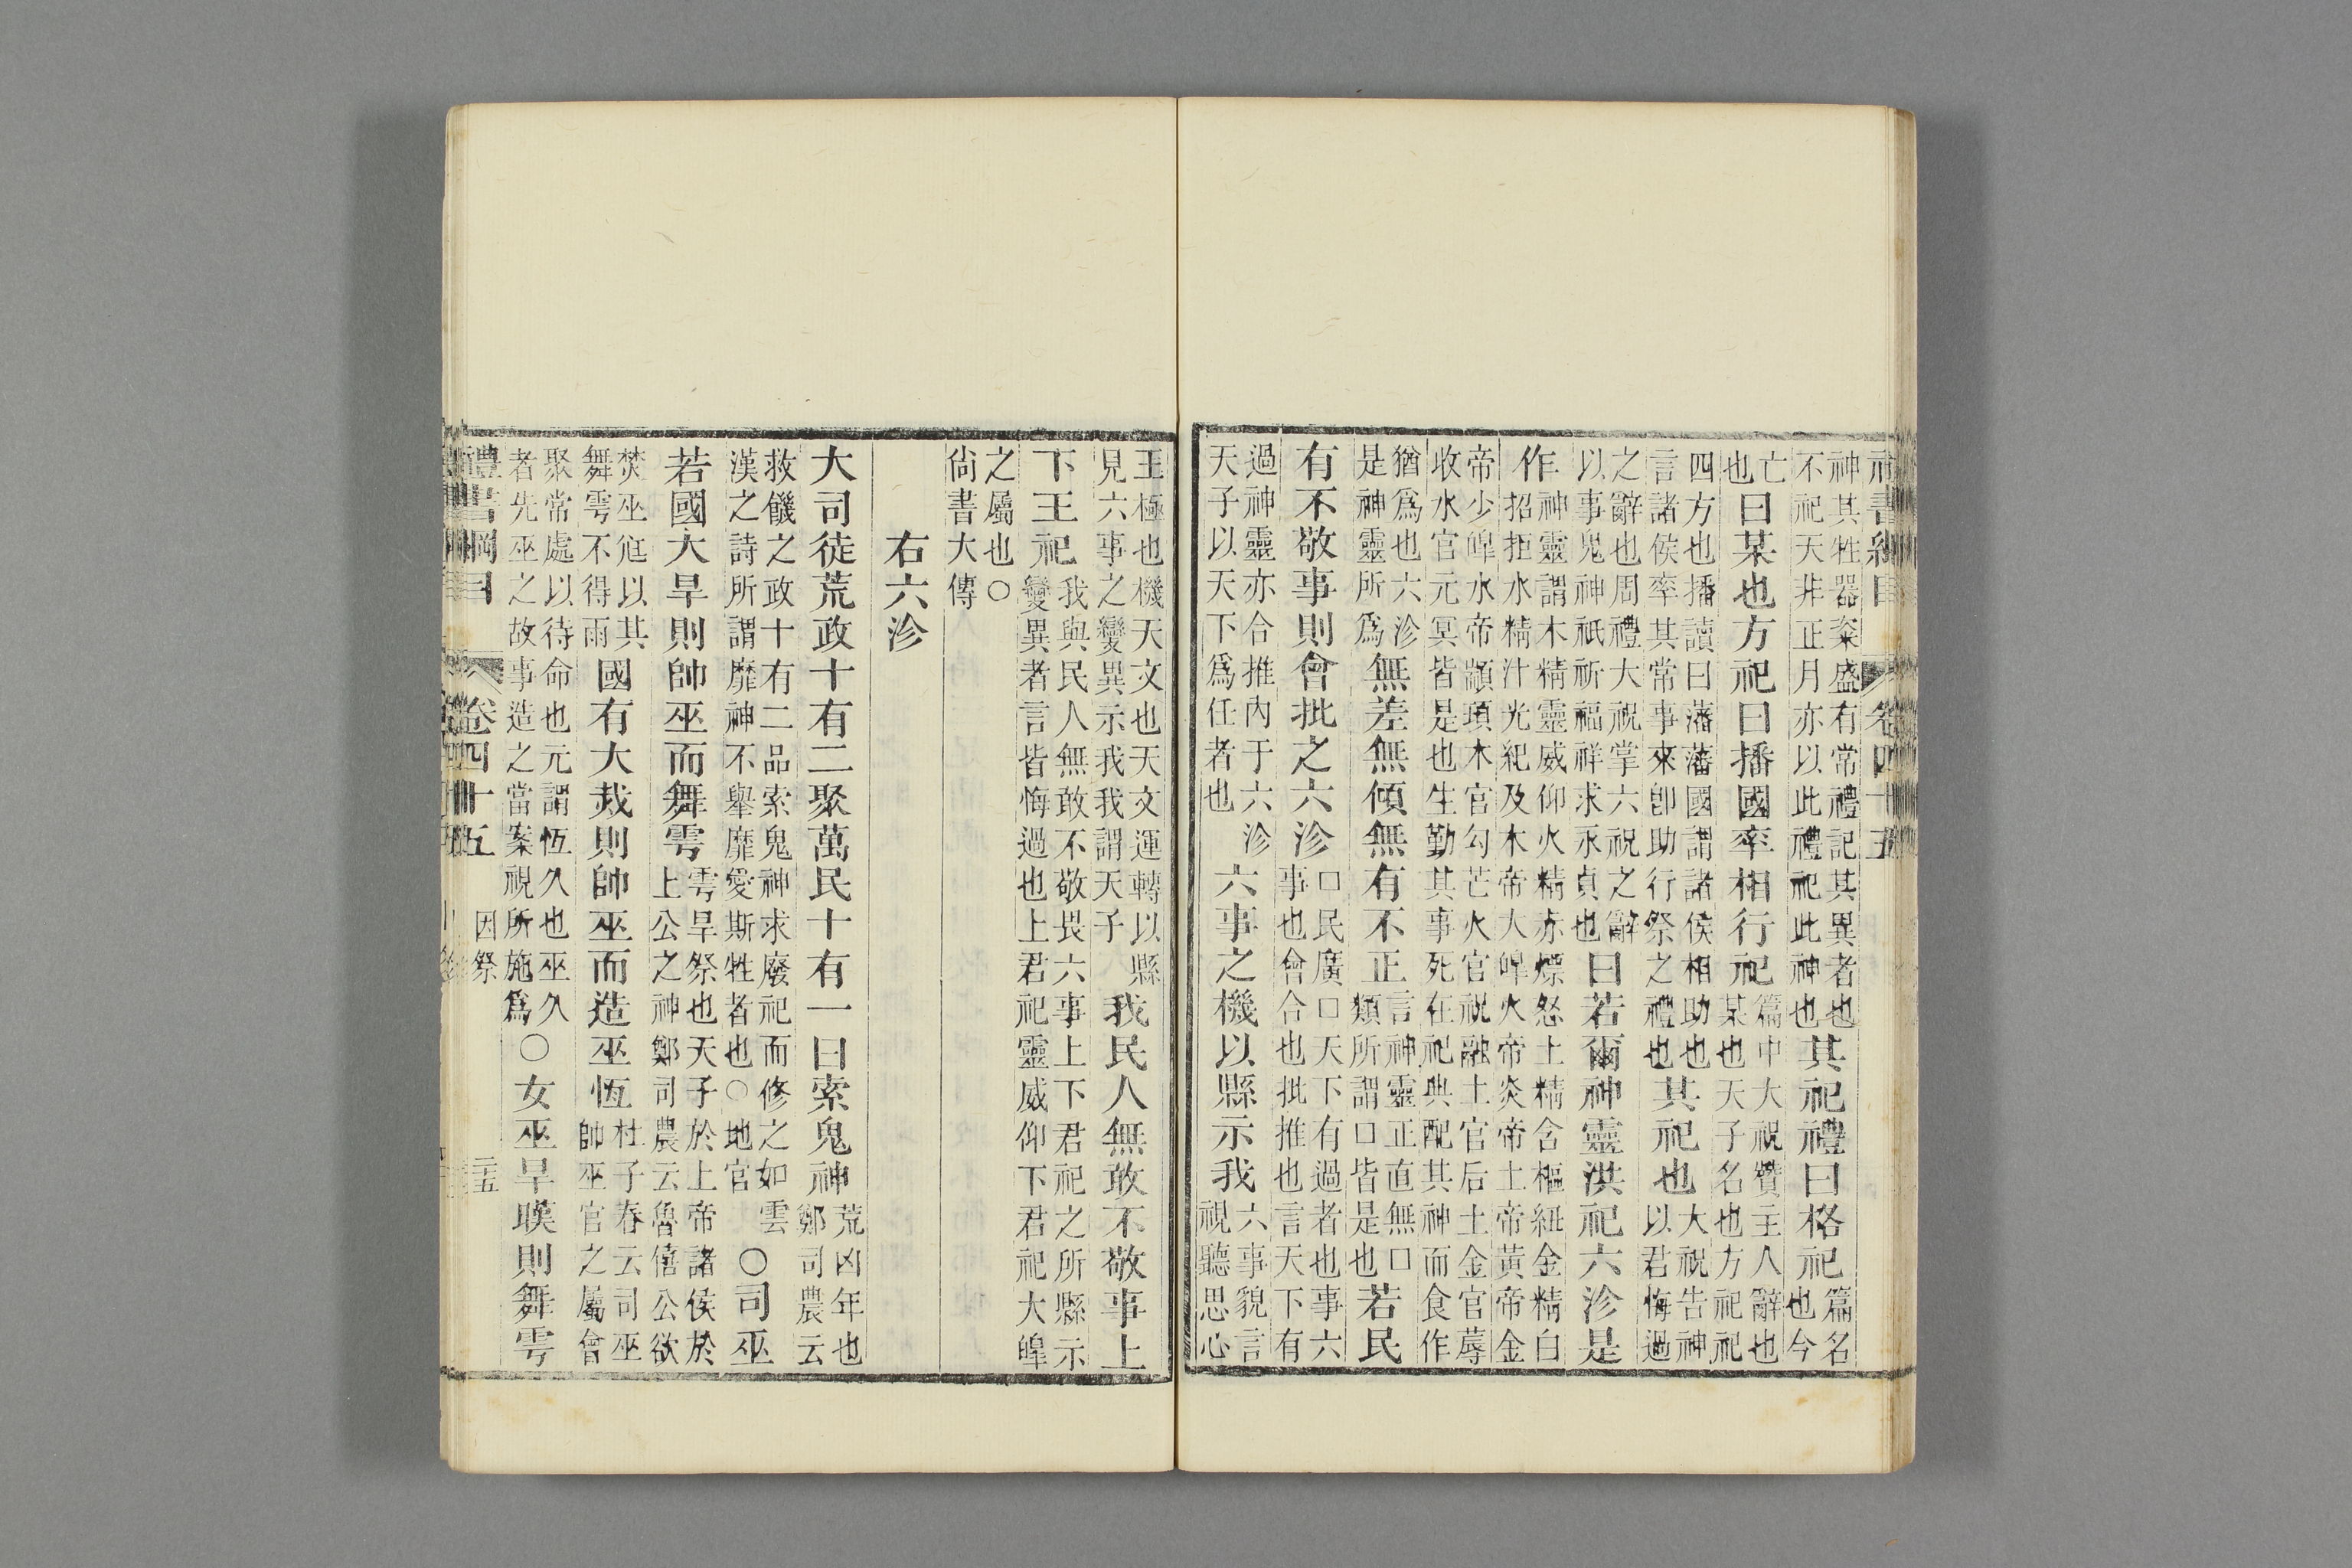 神其牲器粢盛有常禮記其異者也
不祀天非正月亦以此禮祀此神也
其祀禮曰格祀
篇名
也今
亡
也
曰某也方祀曰播國率相行祀
篇中大祝贊主人辭也
某也天子名也方祀祀
四方也播讀曰藩藩國謂諸侯相助也
言諸侯率其常事來卽助行祭之禮也
其祀也
大祝告神
以君悔過
之辭也周禮大祝掌六祝之辭
以事鬼神祇祈福祥求永貞也
曰若爾神靈洪祀六沴是
作
神靈謂木精靈威仰火精赤熛怒土精含樞紐金精白
招拒水精汁光紀及木帝大皥火帝炎帝土帝黃帝金
帝少皥水帝顓頊木官勾芒火官祝融土官后土金官蓐
收水官元冥皆是也生勤其事死在祀典配其神而食作
猶爲也六沴
是神靈所爲
無差無傾無有不正
言神靈正直無口
類所謂口皆是也
若民
有不敬事則會批之六沴
口民廣口天下有過者也事六
事也會合也批推也言天下有
過神靈亦合推內于六沴
天子以天下爲任者也
六事之機以縣示我
六事貌言
視聽思心
王極也機天文也天文運轉以縣
見六事之變異示我我謂天子
我民人無敢不敬事上
下王祀
我與民人無敢不敬畏六事上下君祀之所縣示
變異者言皆悔過也上君祀靈威仰下君祀大皥
之屬也○
尙書大傳
右六沴
大司徒荒政十有二聚萬民十有一曰索鬼神
荒凶年也
鄭司農云
救饑之政十有二品索鬼神求廢祀而修之如雲
漢之詩所謂靡神不舉靡愛斯牲者也○地官
○司巫
若國大旱則帥巫而舞雩
雩旱祭也天子於上帝諸侯於
上公之神鄭司農云魯僖公欲
焚巫尫以其
舞雩不得雨
國有大烖則帥巫而造巫恆
杜子春云司巫
帥巫官之屬會
聚常處以待命也元謂恆久也巫久
者先巫之故事造之當案視所施爲
○女巫旱暵則舞雩
禮書綱目 卷四十五 因祭 二十五